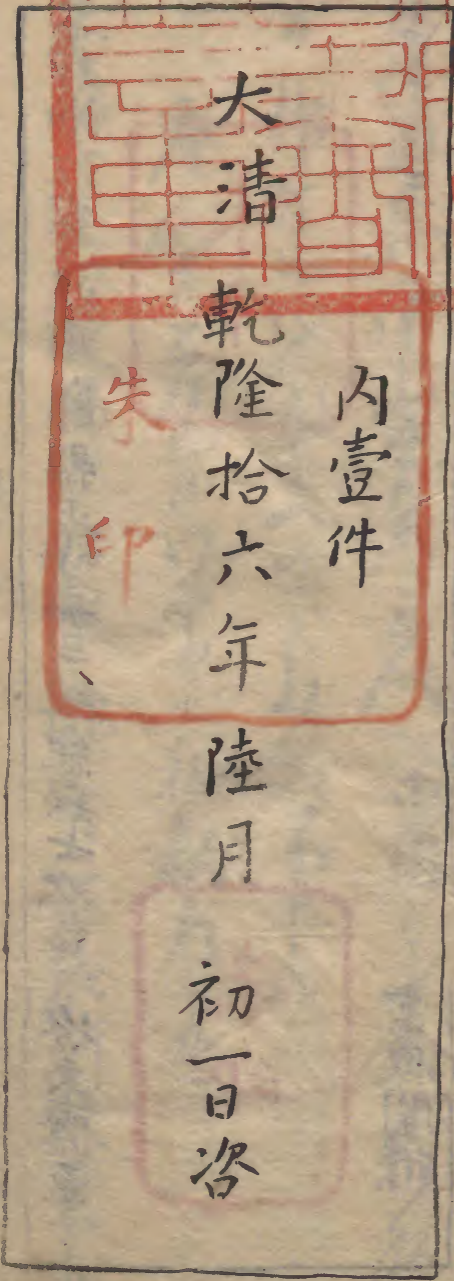 内壹件
大清乾隆拾六年陸月初一日咨
朱印